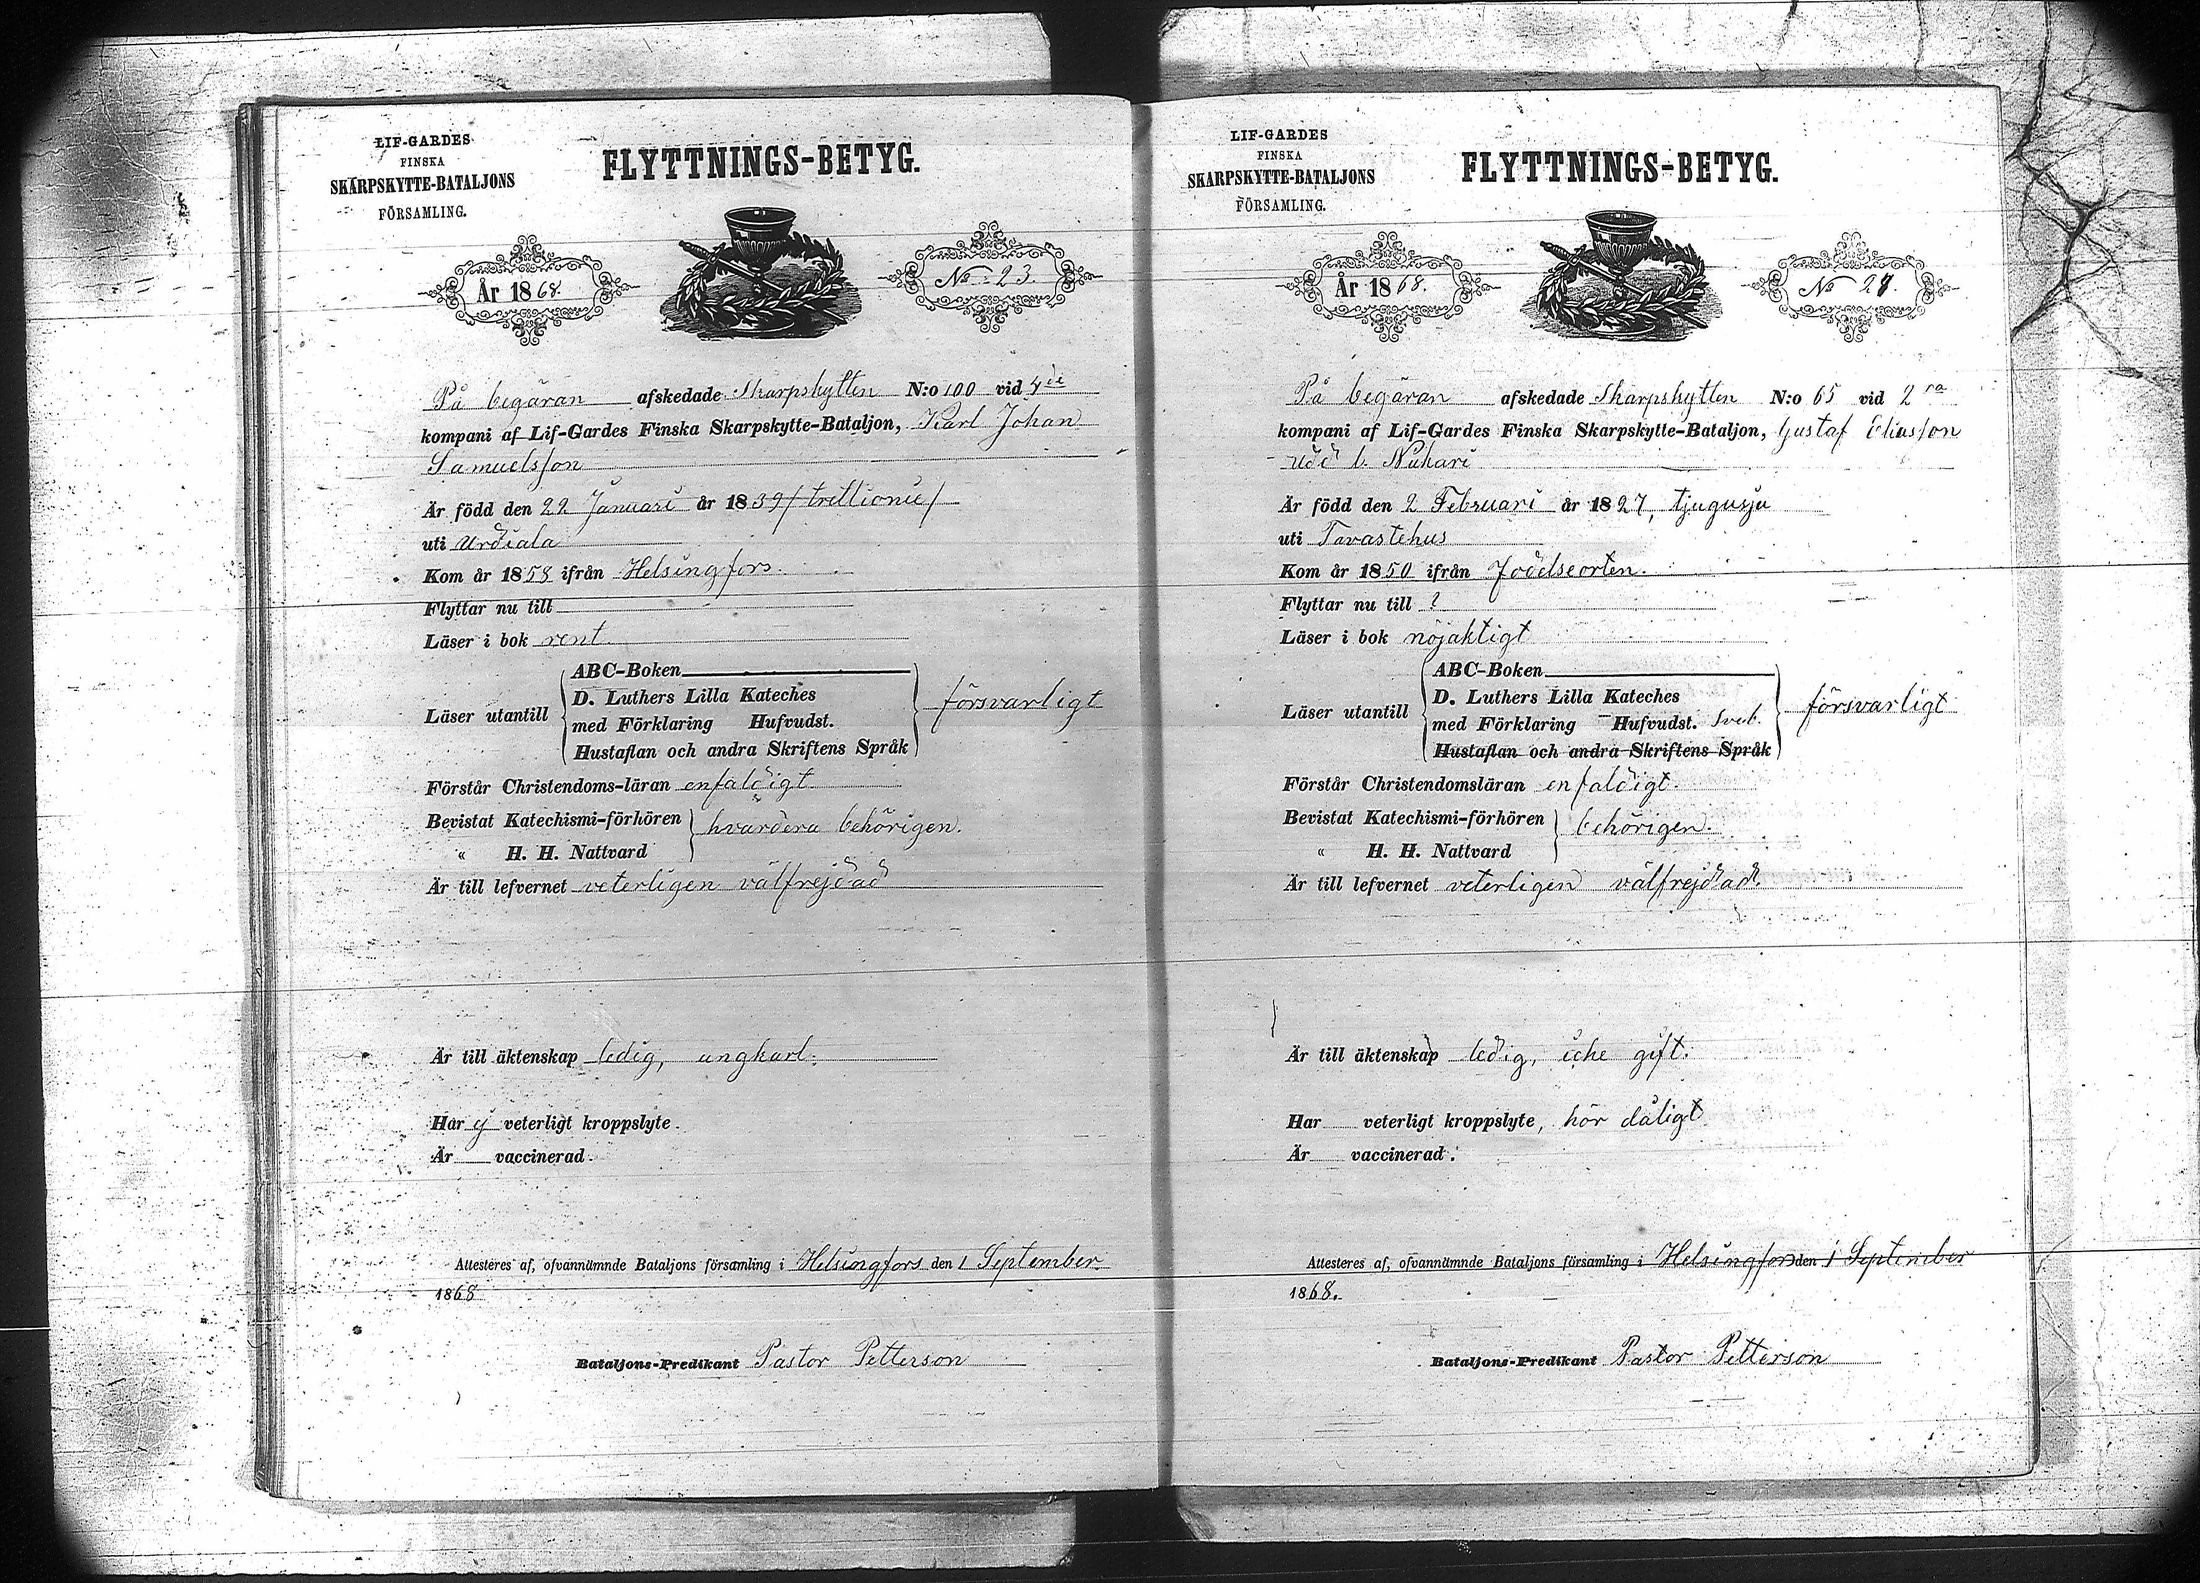 LIF-GARDES
FINSKA
SKARPSKYTTE-BATALJONS
FÖRSAMLING.
FLYTTNINGS-BETYG.
År 1868.
No 23.
På begäran afskedade Skarpskytten N:o 100 vid 4de
kompani af Lif-Gardes Finska Skarpskytte-Bataljon, Karl Johan
Samuelsson
Är född den 22 Januari år 1839 / trettionie /
uti Urdiala
Kom år 1858 ifrån Helsingfors.
Flyttar nu till
Läser i bok rent.
Läser utantill
ABC-Boken
D. Luthers Lilla Kateches
med Förklaring Hufvudst.
Hustaflan och andra Skriftens Språk
försvarligt
Förstår Christendoms-läran enfaldigt
Bevistat Katechismi-förhören
" H. H. Nattvard
hvardera behörigen.
Är till lefvernet veterligen välfrejdad
Är till äktenskap ledig, ungkarl.
Har ej veterligt kroppslyte.
Är vaccinerad.
Attesteres af, ofvannämnde Bataljons församling i Helsingfors den 1 September
1868
Bataljons-Predikant Pastor Petterson
LIF-GARDES
FINSKA
SKARPSKYTTE-BATALJONS
FÖRSAMLING.
FLYTTNINGS-BETYG.
År 1868.
No
På begäran afskedade Skarpskytten N:o 65 vid 2ra
kompani af Lif-Gardes Finska Skarpskytte-Bataljon, Gustaf Eliasson
Udd l. Nukari
Är född den 2 Februari år 1827, tjugusju
uti Tavastehus
Kom år 1850 ifrån födelseorten.
Flyttar nu till ?
Läser i bok nöjaktigt
Läser utantill
ABC-Boken
D. Luthers Lilla Kateches
med Förklaring Hufvudst. Sveb.
Hustaflan och andra Skriftens Språk
försvarligt
Förstår Christendomsläran enfaldigt.
Bevistat Katechismi-förhören
" H. H. Nattvard
behörigen.
Är till lefvernet veterligen välfrejdad.
Är till äktenskap ledig, icke gift.
Har veterligt kroppslyte, hör dåligt
Är vaccinerad.
Attesteres af, ofvannämnde Bataljons församling i Helsingfors den 1 September
1868.
Bataljons-Predikant Pastor Petterson